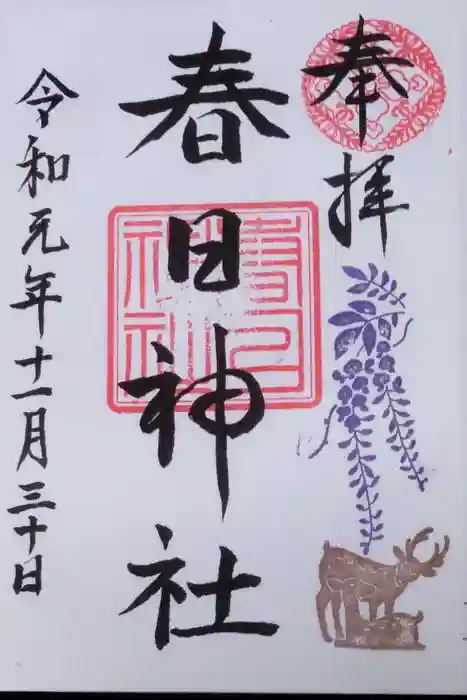 奉拝
春日神社
令和元年十一月三十日